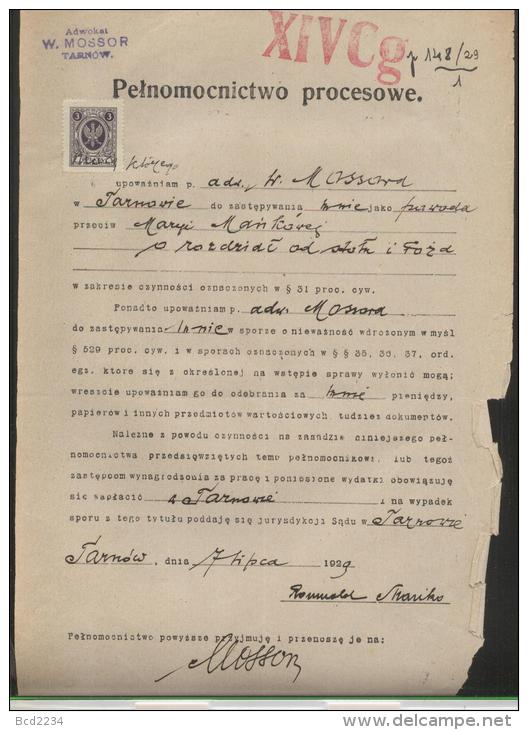 Adwokat
W. MOSSOR
TARNÓW.
XIVCg
148/29
1
Pełnomocnictwo procesowe.
3 3
którego
upoważniam p. adw. W. Mossora
w Tarnowie do zastępywania mnie jako powoda
przeciw Maryi Mańkowej
o rozdział od stołu i łoża
w zakresie czynności oznaczonych w § 31 proc. cyw.
Ponadto upoważniam p. adw. Mossora
do zastępywania mnie w sporze o nieważność wdrożonym w myśl
§ 529 proc. cyw. i w sporach oznaczonych w § § 35, 36, 37, ord.
egz. które się z określonej na wstępie sprawy wyłonić mogą;
wreszcie upoważniam go do odebrania za mnie pieniędzy,
papierów i innych przedmiotów wartościowych, tudzież dokumentów.
Należne z powodu czynności na zasadzie niniejszego peł-
nomocnictwa przedsięwziętych temu pełnomocnikowi, lub tegoż
zastępcom wynagrodzenia za pracę i poniesione wydatki obowiązuję
się zapłacić w Tarnowie i na wypadek
sporu z tego tytułu poddaję się jurysdykcji Sądu w Tarnowie
Tarnów, dnia 7 lipca 1929
Romuald Mańko
Pełnomocnictwo powyższe przyjmuję i przenoszę je na:
Mossor
Bcd2234
www.delcampe.net